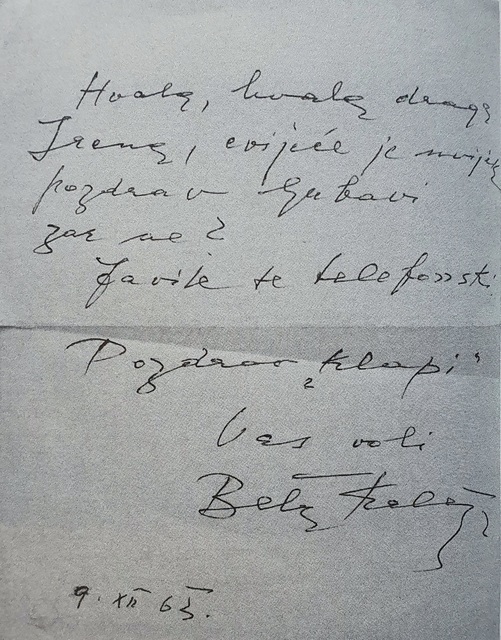 Hvala, hvala draga
Irena, cvijeće je uvijek
pozdrav ljubavi
zar ne?
Javite se telefonski.
Pozdrav „klapi“
Vas voli
Bela
9. XII 65.